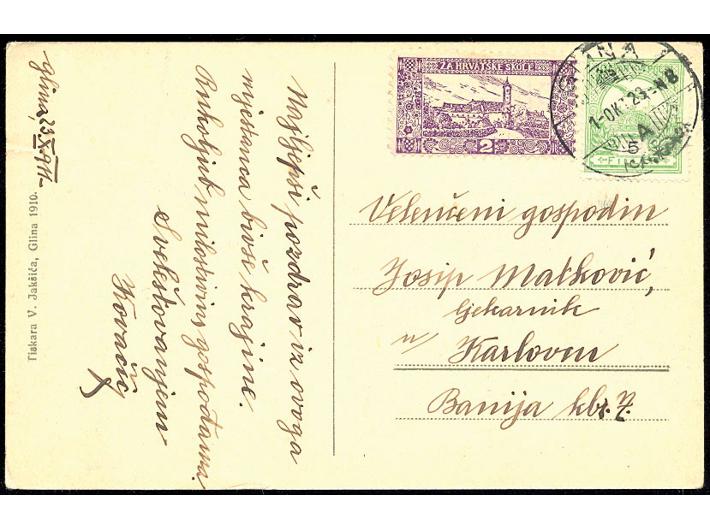 Glina, 23/XI 911.
Najljepši pozdrav iz ovoga
mjestanca bivše krajine.
Rukoljub milostivim gospođama.
Sveštovanjem
Kovačić
Tiskara V. Jakšića, Glina 1910.
ZA HRVATSKE ŠKOLE
2
GLINA
5
Velenčeni gospodin
Josip Matković,
ljekarnik
u
Karlovcu
Banija kbr. 7.